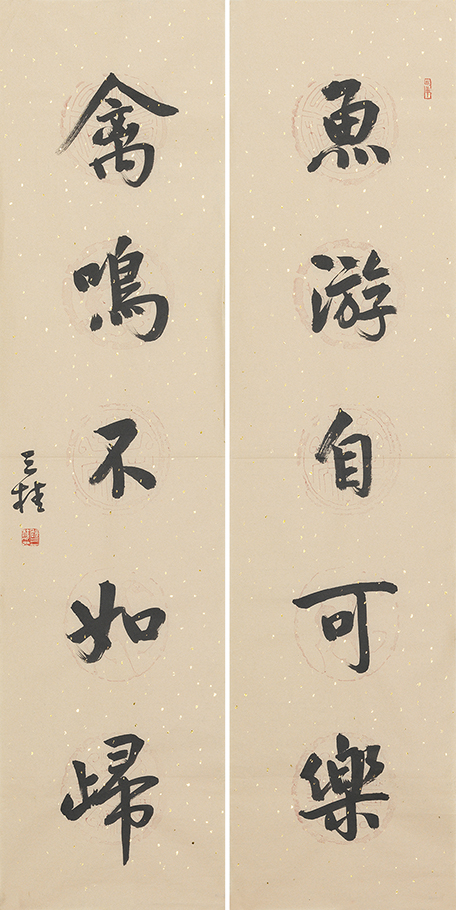 魚游自可樂
禽鳴不如歸
三桂